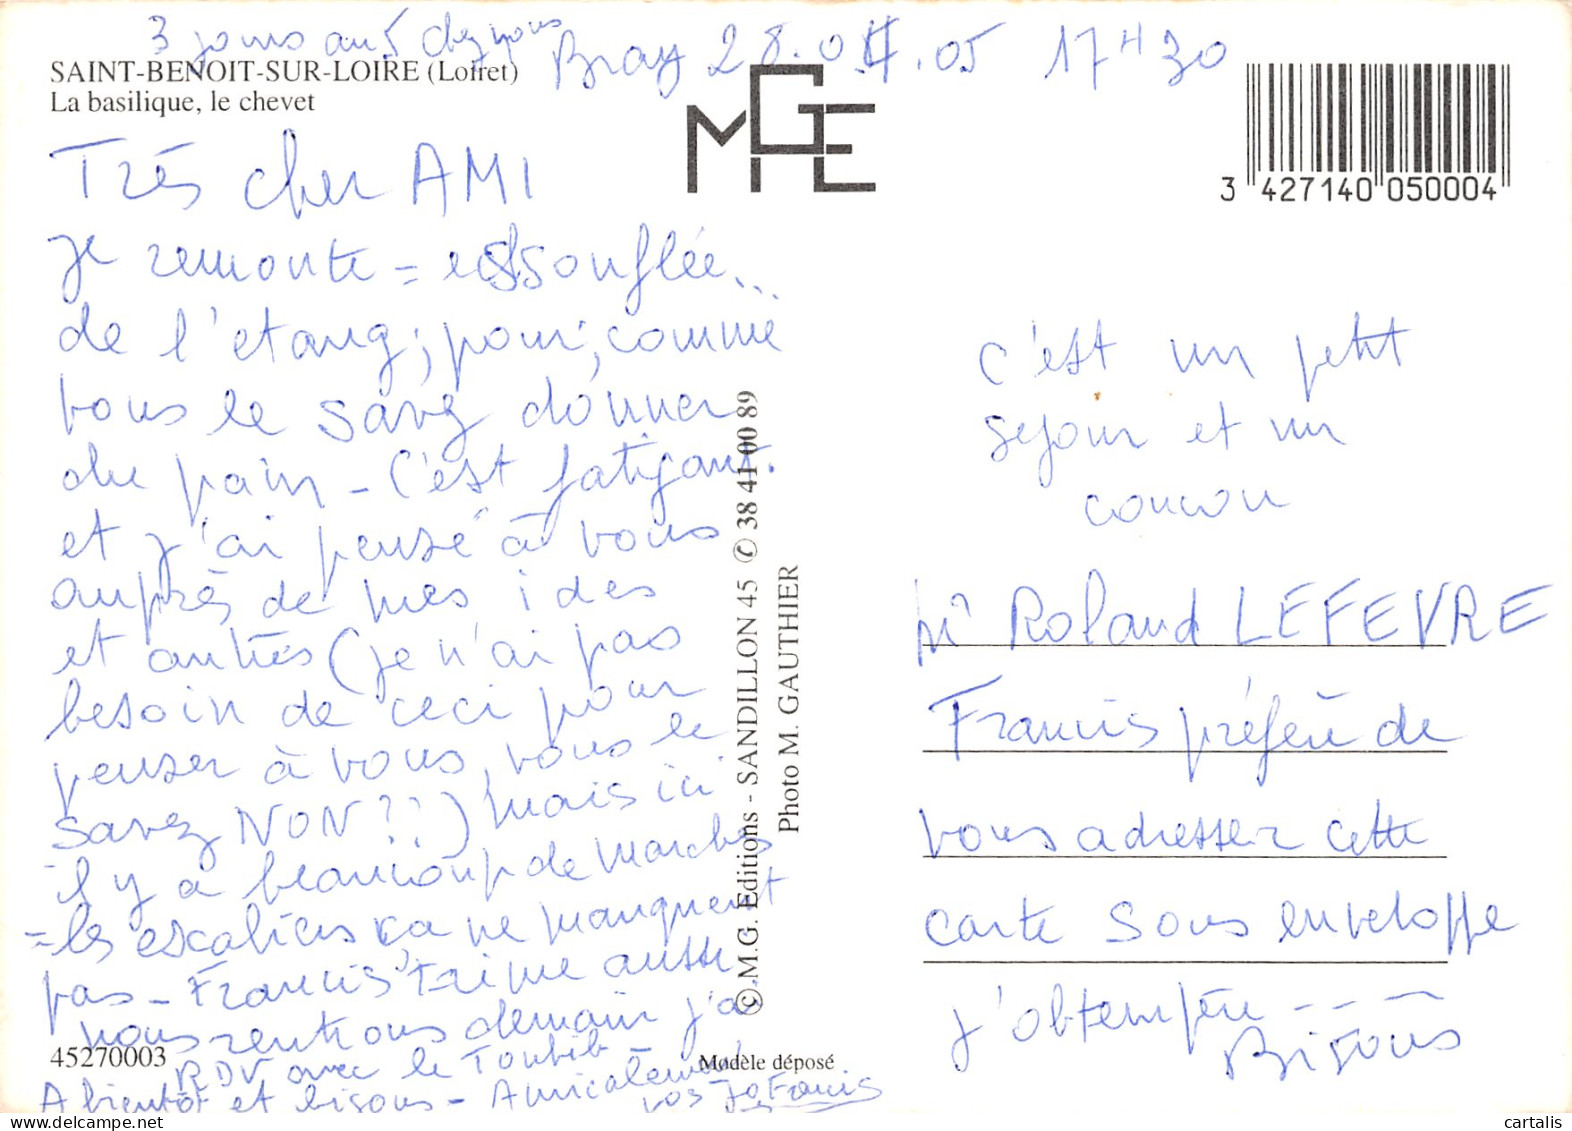 3 jours au 5 chez vous
Bray 28.04.05 17H30
SAINT-BENOIT-SUR-LOIRE (Loiret)
La basilique, le chevet
MGE
3 427140 050004
Très cher AMI
je remonte = essouflée...
de l'etang, pour, comme
vous le savez donner
du pain - c'est fatigant.
et j'ai pensé à vous
auprès de mes ides
et autres (je n'ai pas
besoin de ceci pour
penser à vous, vous le
savez NON ??) mais ici
il y a beaucoup de marches
= les escaliers ça ne manquent
pas - Francis trime aussi
nous rentrons demain j'ai
RDV avec le Toubib
A bientôt et bisous - Amicalement
vos Jo Francis
45270003
Modèle déposé
© M.G. Editions - SANDILLON 45 ✆ 38 41 00 89
Photo M. GAUTHIER
c'est un petit
sejour et un
coucou
Mr Roland LEFEVRE
Francis préfère de
vous adresser cette
carte sous enveloppe
j'obtempère - - -
Bisous
cartalis